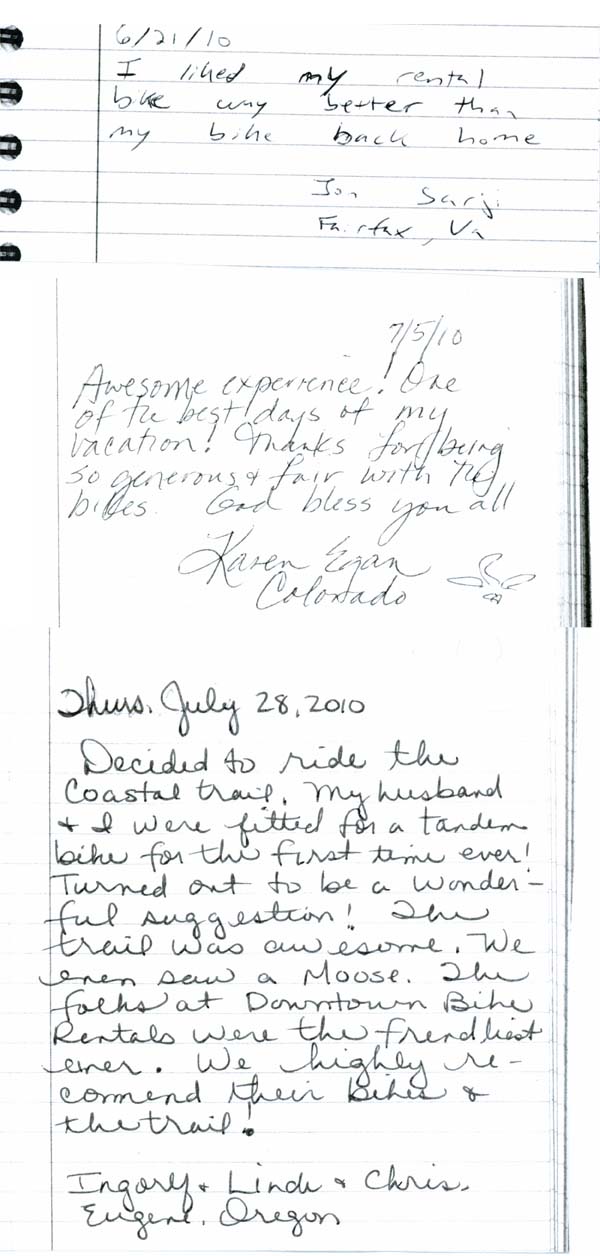 6/21/10
I liked my rental
bike way better than
my bike back home
Jon Sarji
Fairfax, Va
7/5/10
Awesome experience! One
of the best days of my
vacation! Thanks for being
so generous & fair with the
bikes. God bless you all
Karen Egan
Colorado
Thurs. July 28, 2010
Decided to ride the
Coastal trail. My husband
& I were fitted for a tandem
bike for the first time ever!
Turned out to be a wonder-
ful suggestion! The
trail was awesome. We
even saw a Moose. The
folks at Downtown Bike
Rentals were the frendliest
ever. We highly re-
commend their bikes &
the trail!
& Linda & Chris.
Eugene, Oregon